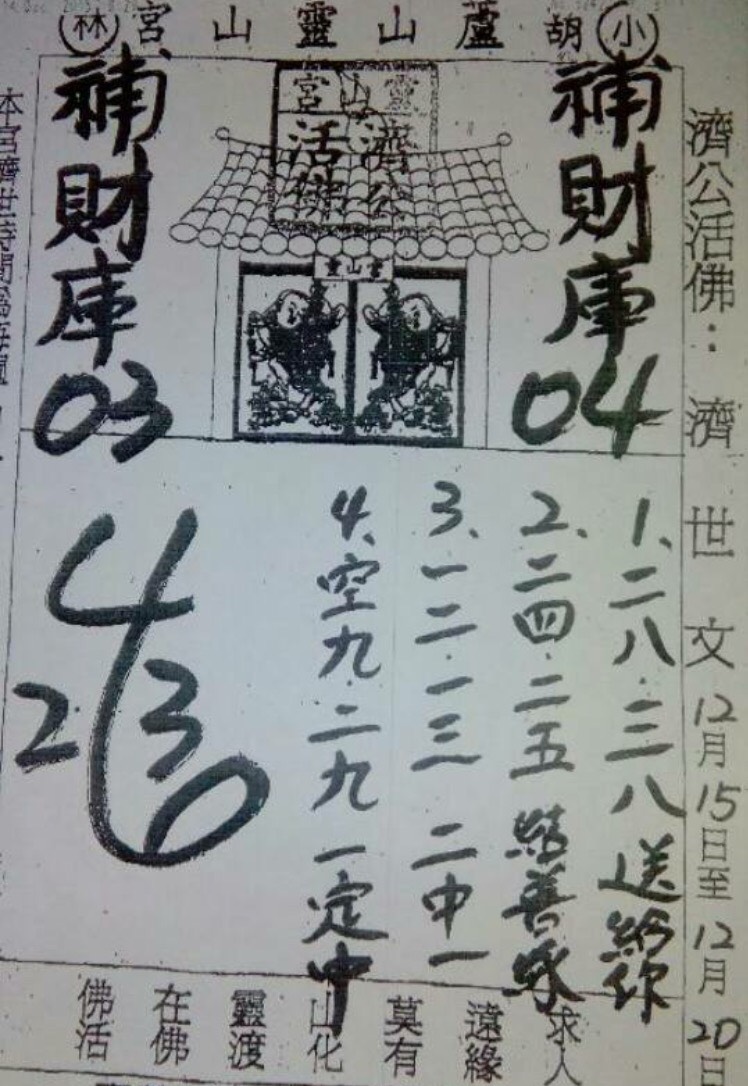 小胡蘆山靈山宮林
濟公活佛：濟世文12月15日至12月20日
補財庫04
靈山宮
濟公
活佛
補財庫03
1、二八.三八送給你
2、二四.二五結善緣
3、一二.一三 二中一
4、空九.二九一定中
4
2 3
0
佛在靈山莫遠求
活佛渡化有緣人
本宮濟世時間為每週